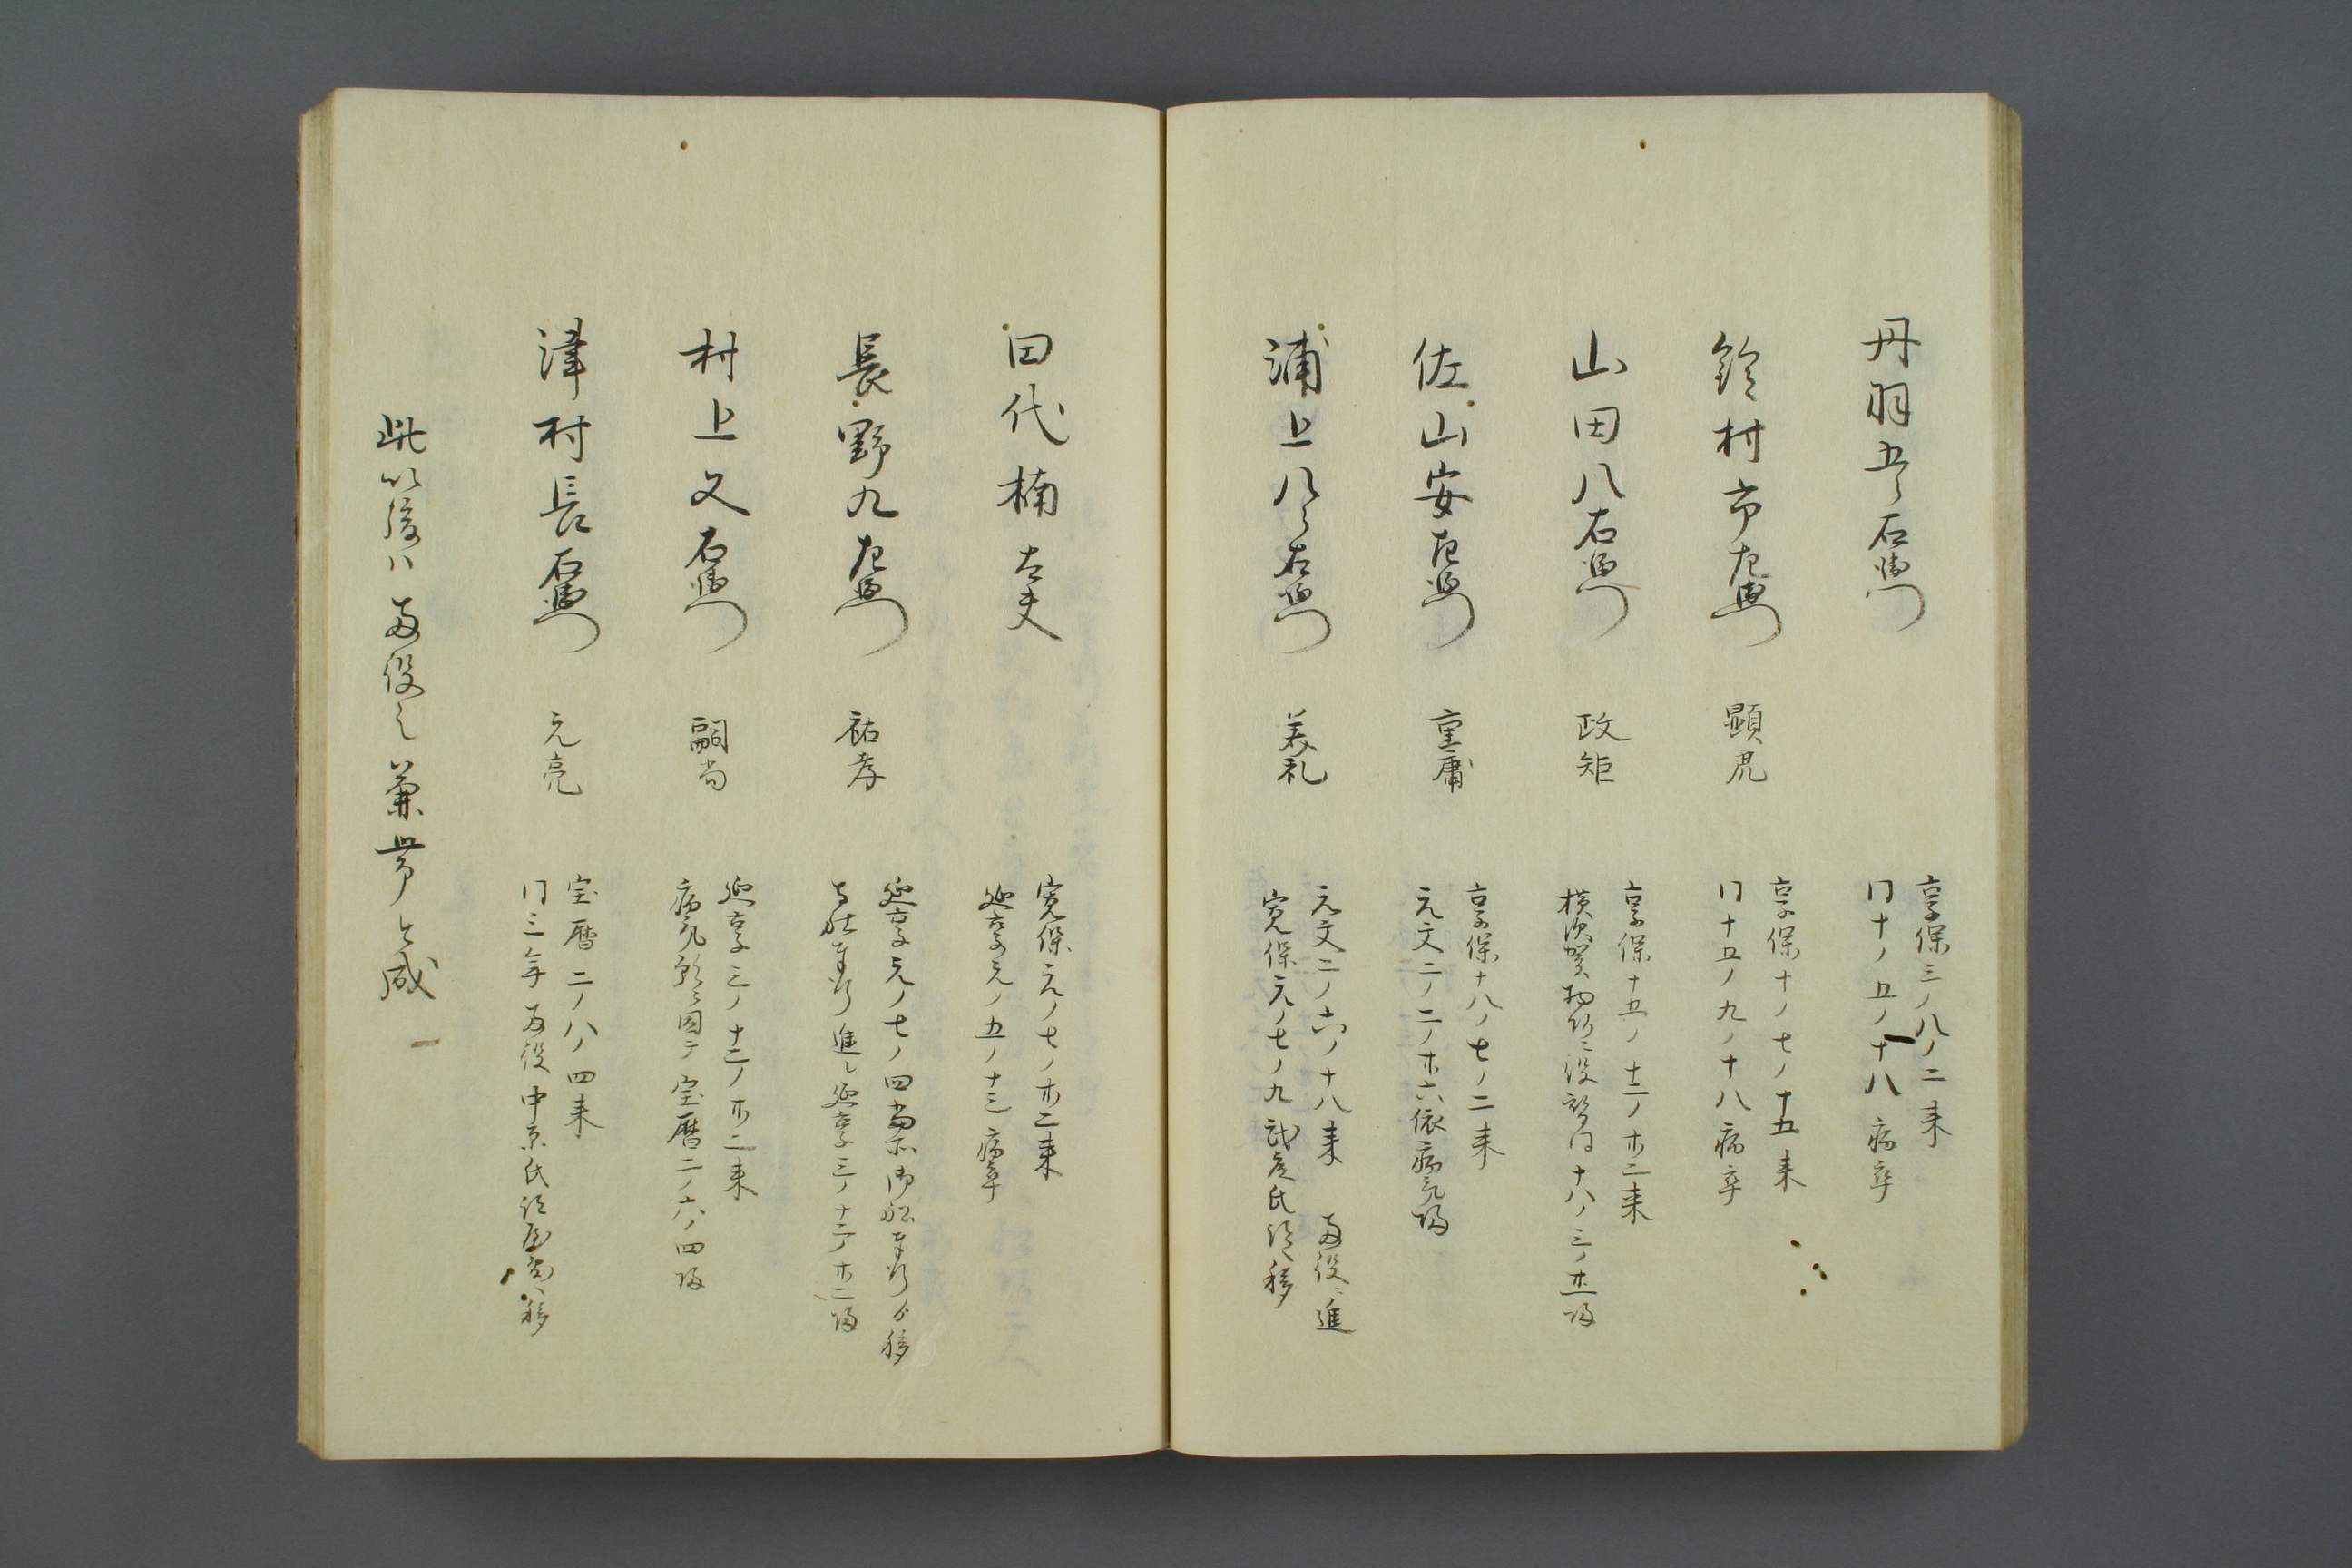 丹羽五郎右衛門
享保三ノ八ノ二来
同十ノ五ノ十八病卒
鈴村市左衛門
顕虎
享保十ノ七ノ十五来
同十五ノ九ノ十八病卒
山田八右衛門
政矩
享保十五ノ十二ノ廿二来
横須賀物頭ニ役替同十八ノ三ノ廿一帰
佐山安左衛門
重庸
享保十八ノ七ノ二来
元文二ノ二ノ廿六依病気帰
浦上八郎右衛門
美礼
元文二ノ六ノ十八来 両役ニ進
寛保元ノ七ノ九 氏跡ヘ移
田代楠太夫
寛保元ノ七ノ廿二来
延享元ノ五ノ十三病卒
長野九左衛門
祐孝
延享元ノ七ノ四当所御船奉行ゟ移
奉行ニ進ミ延享三ノ十二ノ廿二帰
村上又右衛門
嗣尚
延享三ノ十二ノ廿二来
病気願ニ因テ宝暦二ノ六ノ四帰
津村長右衛門
元亮
宝暦二ノ八ノ四来
同三年両役中 氏跡屋敷ヘ移
此以後ハ両役之兼帯と成